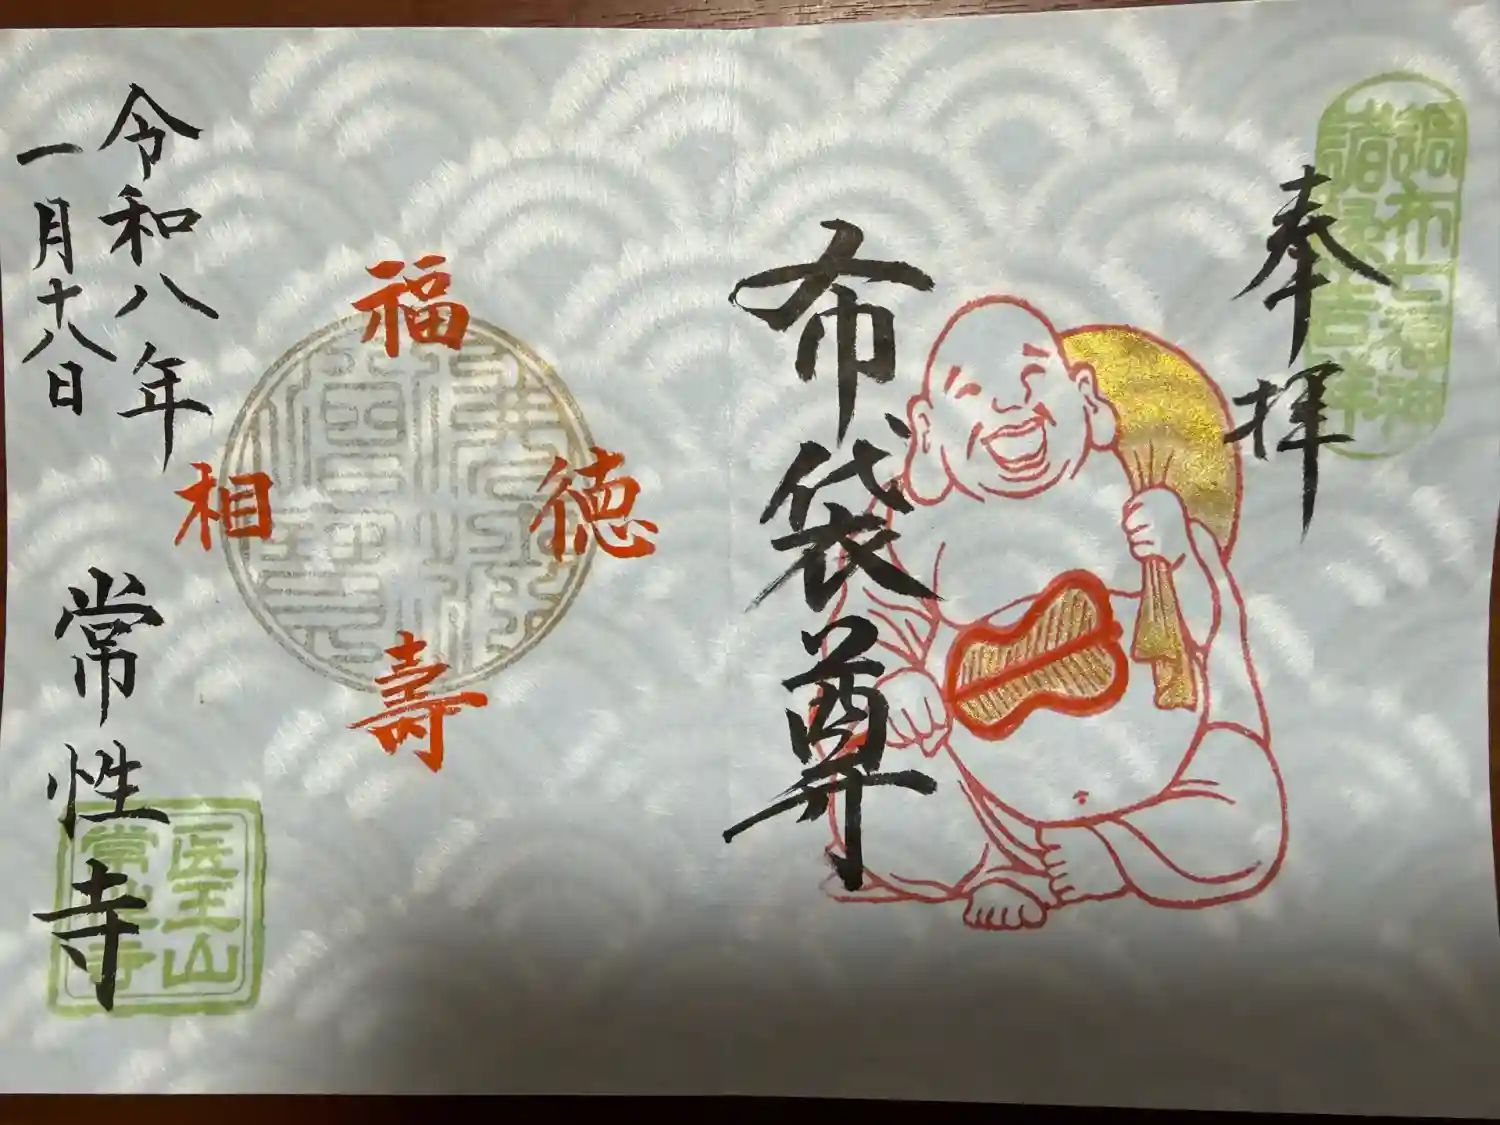 調布七福神
諸縁吉祥
奉拝
布袋尊
福
徳
壽
相
佛法
僧寶
令和八年
一月十八日
常性寺
医王山
常性寺